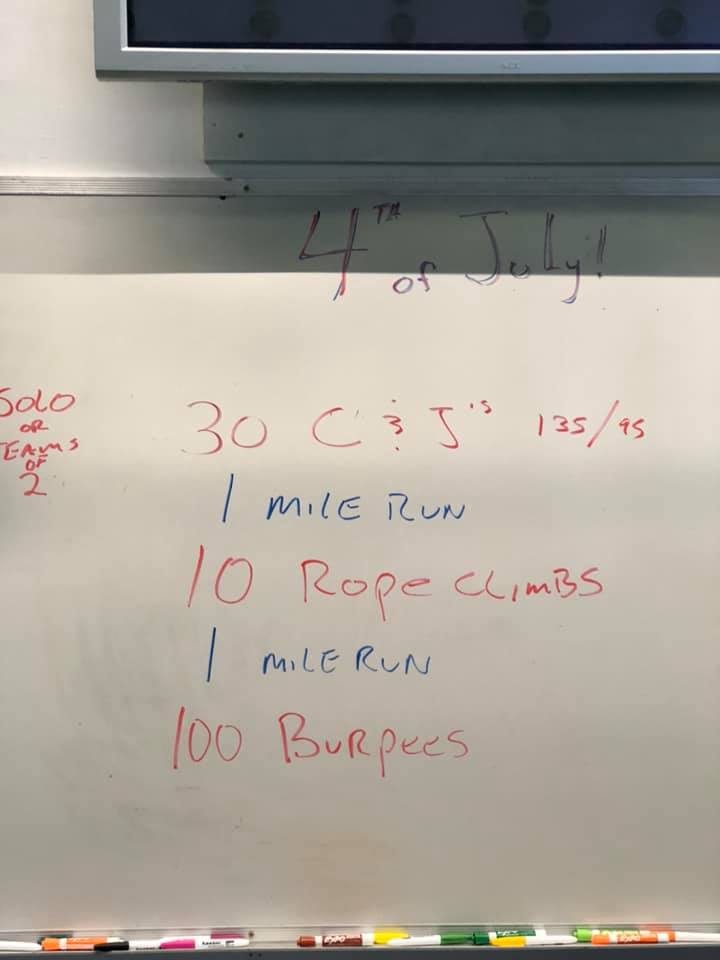 4TH of July!
SOLO
OR
TEAMS
OF
2
30 C & J's 135/95
1 MILE RUN
10 Rope Climbs
1 MILE RUN
100 Burpees